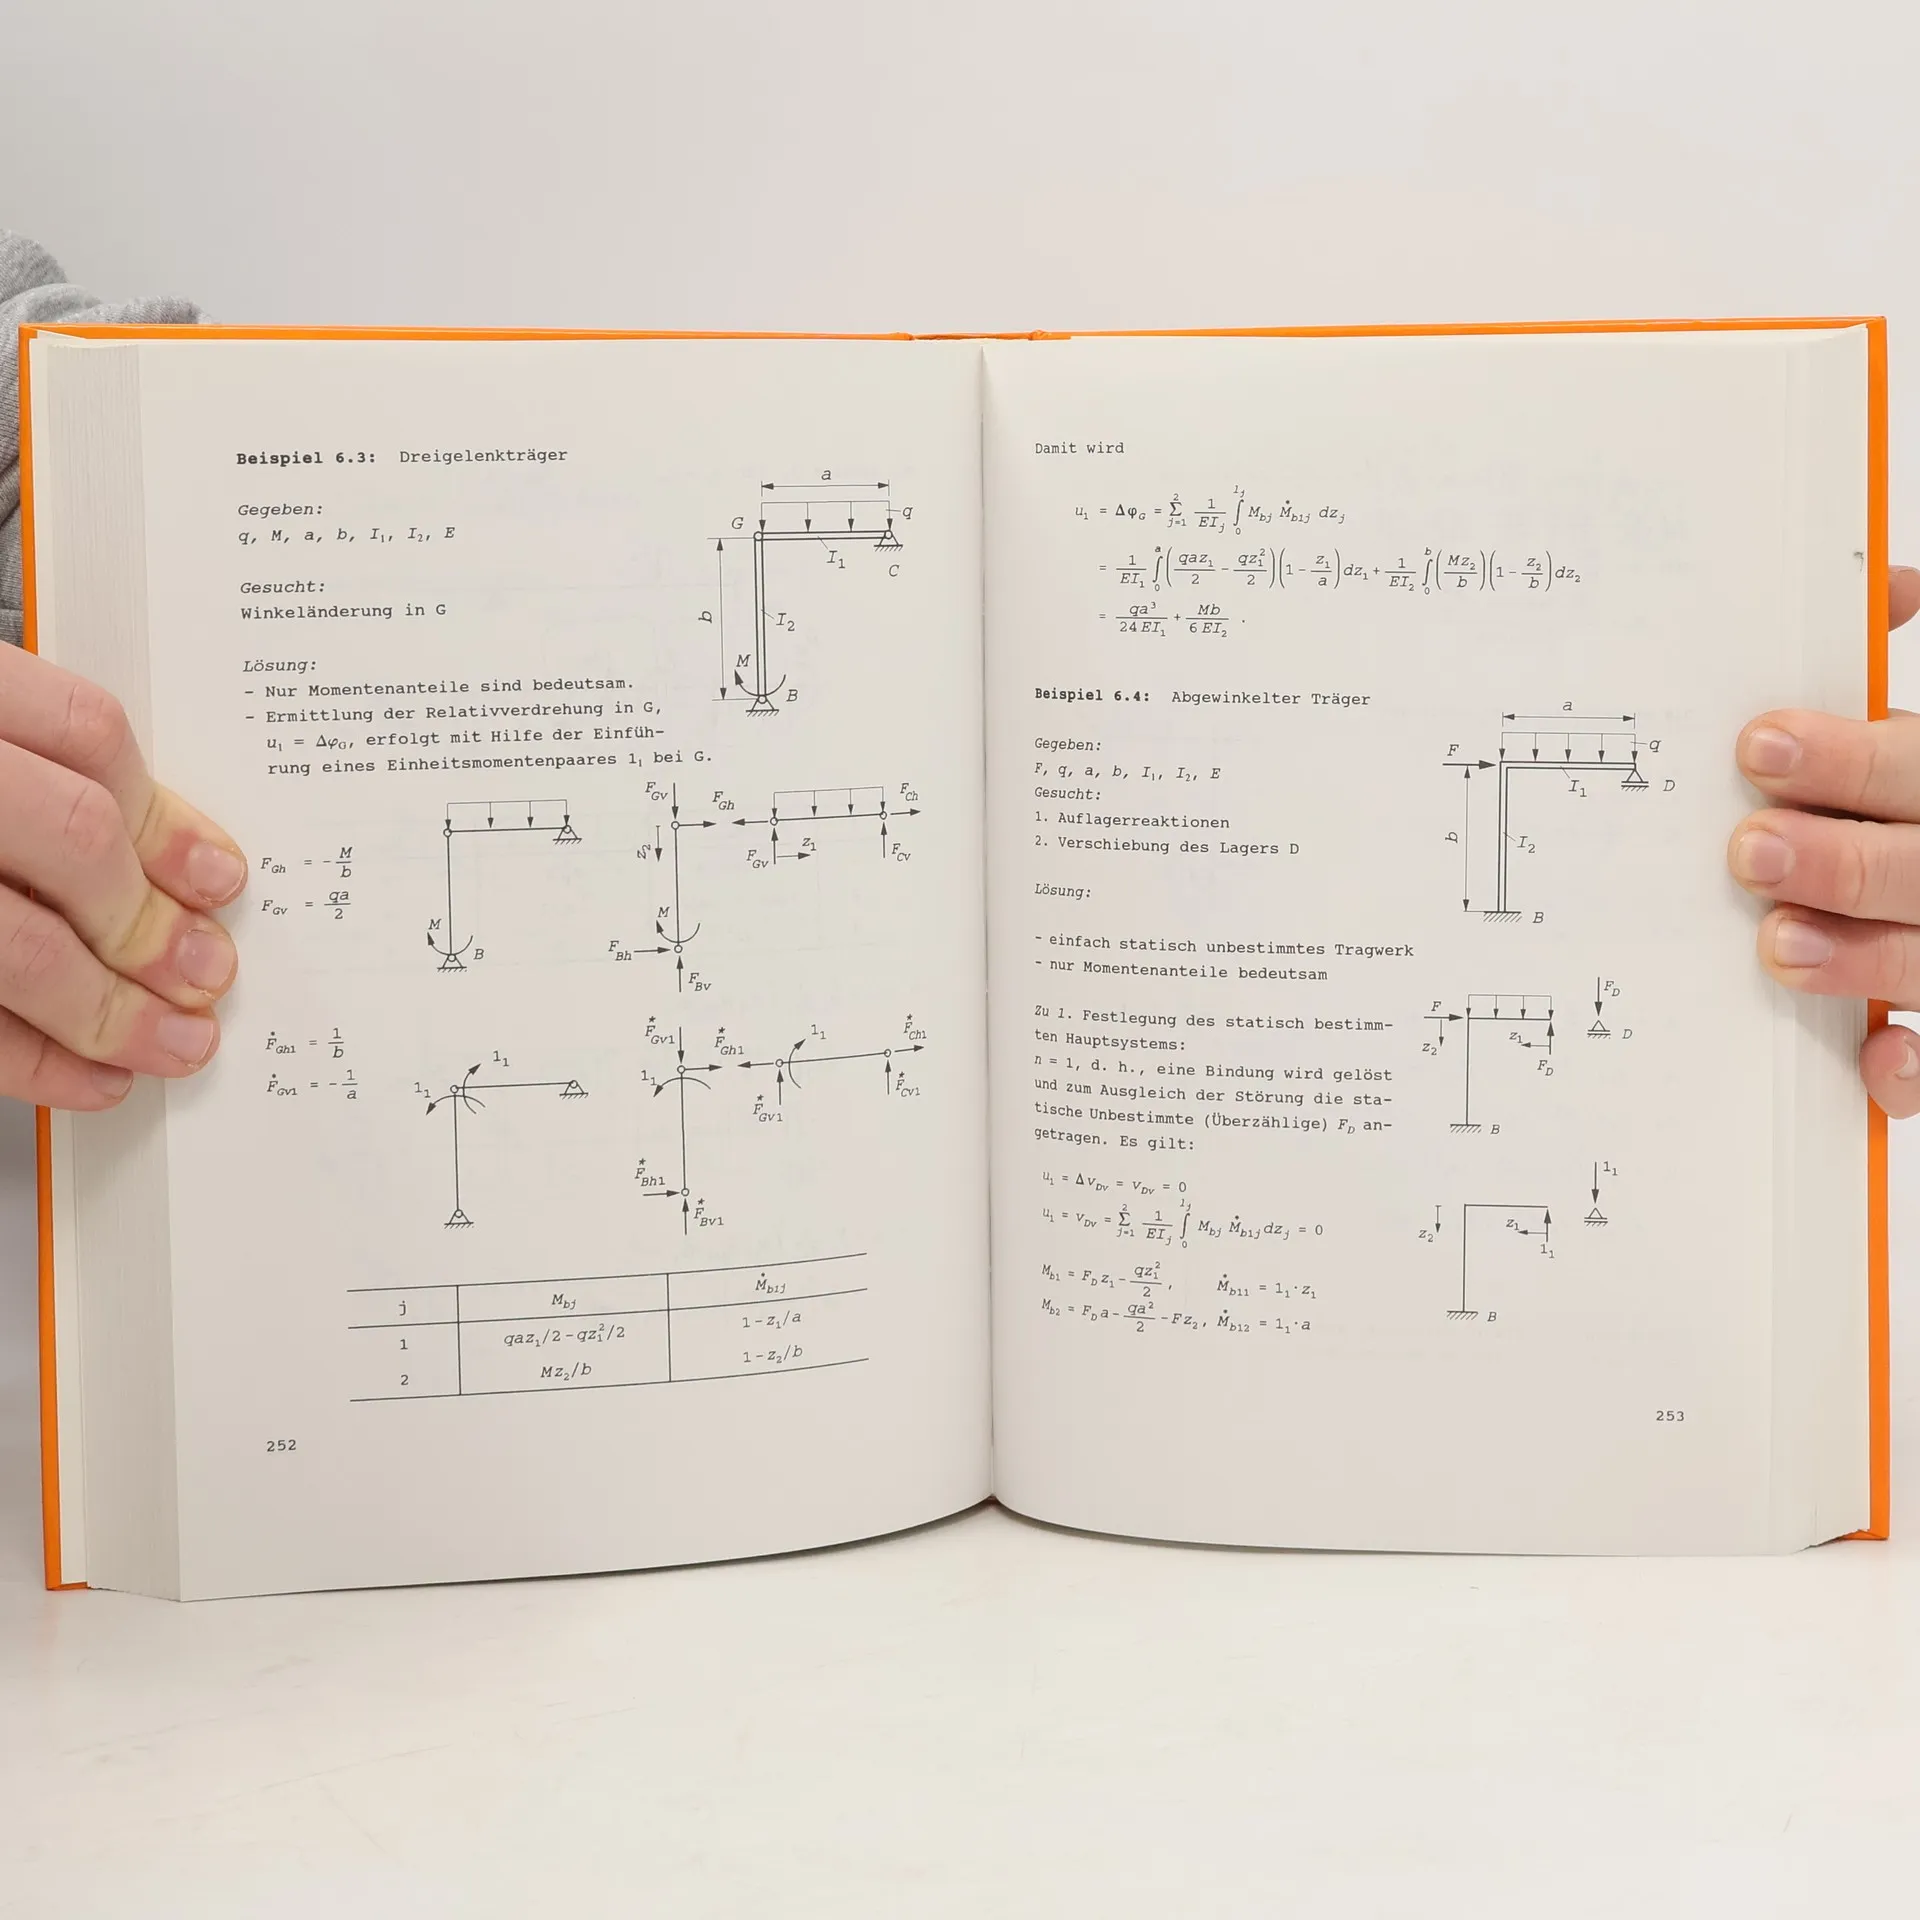 Beispiel 6.3: Dreigelenkträger
Gegeben:
q, M, a, b, I₁, I₂, E
Gesucht:
Winkeländerung in G
Lösung:
– Nur Momentenanteile sind bedeutsam.
– Ermittlung der Relativverdrehung in G,
u₁ = Δφ_G, erfolgt mit Hilfe der Einfüh-
rung eines Einheitsmomentenpaares 1₁ bei G.
a
q
G
I₁
C
b
I₂
M
B
F_Gh = - M/b
F_Gv = qa/2
M
B
F_Gv
F_Gh
z₂
M
F_Bh
F_Bv
F_Ch
F_Gv
z₁
F_Cv
F*_Gh1 = 1/b
F*_Gv1 = - 1/a
1₁
1₁
F*_Gv1
F*_Gh1
1₁
F*_Ch1
1₁
F*_Gv1
F*_Cv1
F*_Bh1
F*_Bv1
j M_bj M*_b1j
1 qaz₁/2 – qz₁²/2 1 – z₁/a
2 Mz₂/b 1 – z₂/b
252
Damit wird
u₁ = Δφ_G = Σ_{j=1}^{2} 1/(EI_j) ∫_0^{l_j} M_bj M*_b1j dz_j
= 1/(EI₁) ∫_0^a (qaz₁/2 – qz₁²/2)(1 – z₁/a) dz₁ + 1/(EI₂) ∫_0^b (Mz₂/b)(1 – z₂/b) dz₂
= qa³/(24 EI₁) + Mb/(6 EI₂) .
Beispiel 6.4: Abgewinkelter Träger
Gegeben:
F, q, a, b, I₁, I₂, E
Gesucht:
1. Auflagerreaktionen
2. Verschiebung des Lagers D
Lösung:
- einfach statisch unbestimmtes Tragwerk
- nur Momentenanteile bedeutsam
a
q
F
I₁
D
b
I₂
B
Zu 1. Festlegung des statisch bestimm-
ten Hauptsystems:
n = 1, d. h., eine Bindung wird gelöst
und zum Ausgleich der Störung die sta-
tische Unbestimmte (Überzählige) F_D an-
getragen. Es gilt:
F
z₂
z₁
F_D
F_D
D
B
u₁ = Δv_Dv = v_Dv = 0
u₁ = v_Dv = Σ_{j=1}^{2} 1/(EI_j) ∫_0^{l_j} M_bj M*_b1j dz_j = 0
M_b1 = F_D z₁ – qz₁²/2 , M*_b11 = 1₁·z₁
M_b2 = F_D a – qa²/2 – Fz₂, M*_b12 = 1₁·a
1₁
z₂
z₁
1₁
B
253